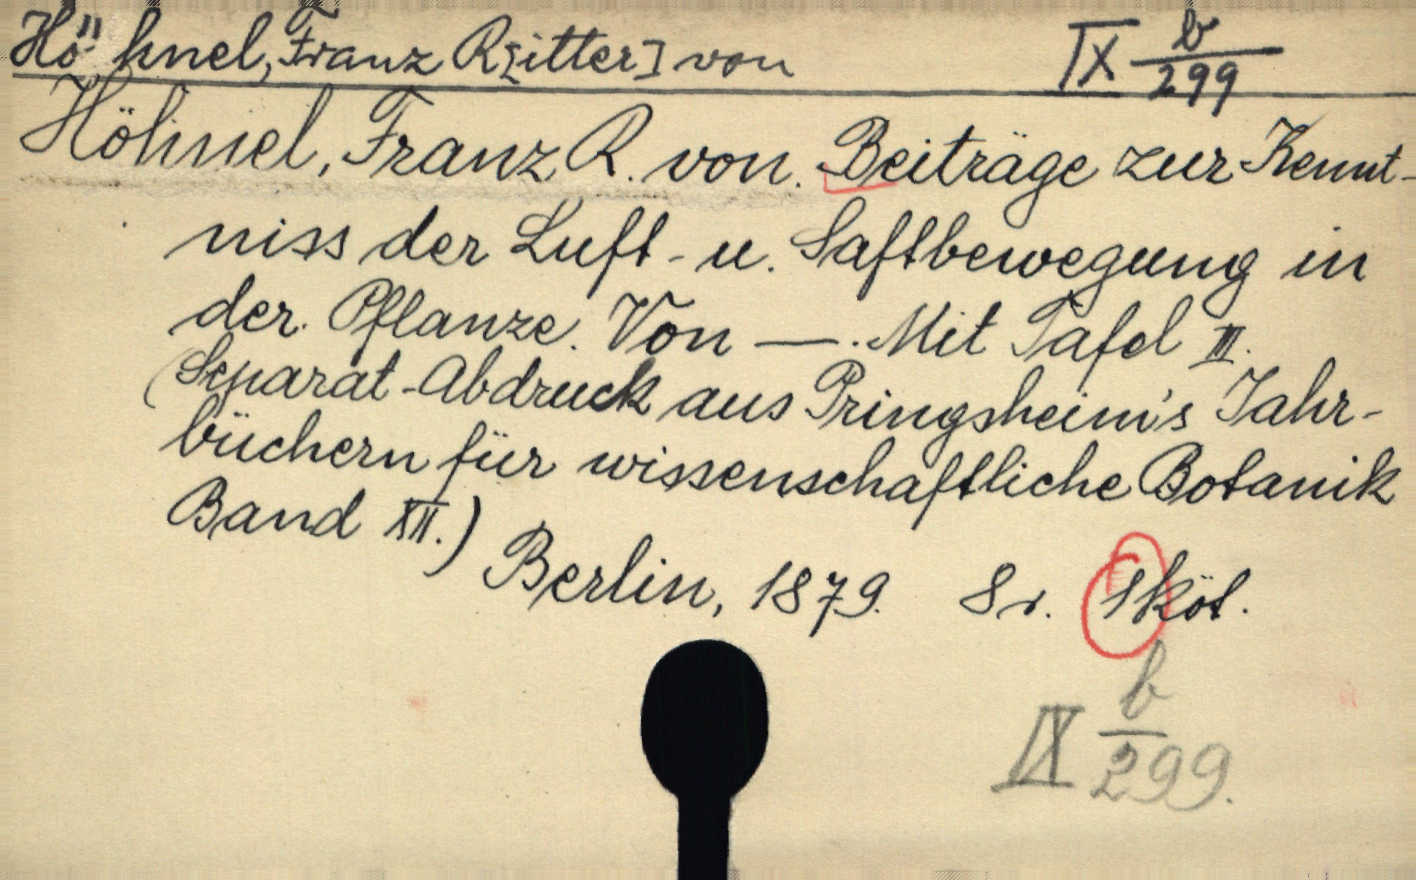 Höhnel, Franz R[itter] von IX b/299
Höhnel, Franz R. von. Beiträge zur Kennt-
niss der Luft- u. Saftbewegung in
der Pflanze. Von —. Mit Tafel III.
(Separat-Abdruck aus Pringsheim's Jahr-
büchern für wissenschaftliche Botanik
Band XII.) Berlin, 1879. 8r. 1 köt.
IX b/299.